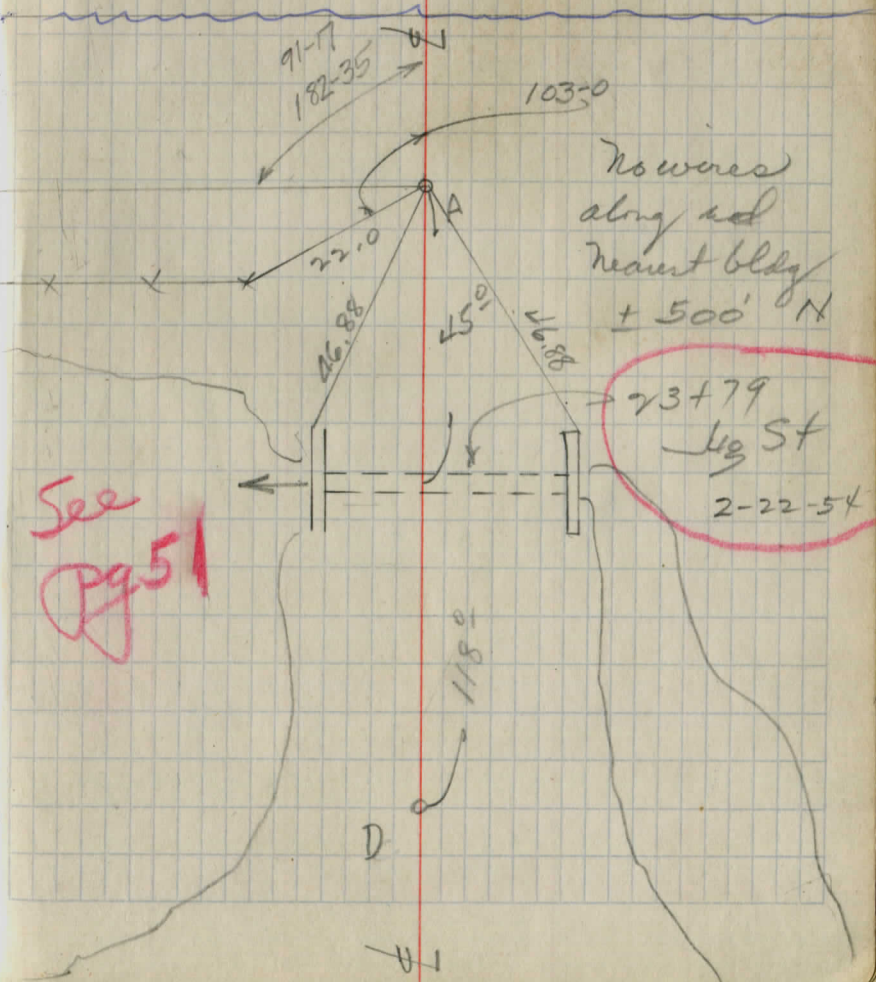 91-17
182-35
103-0
No wires
along rd
Nearest bldg
± 500' N
A
22.0
46.88
45.0
46.88
23+79
St
2-22-54
See
pg 51
118.0
D